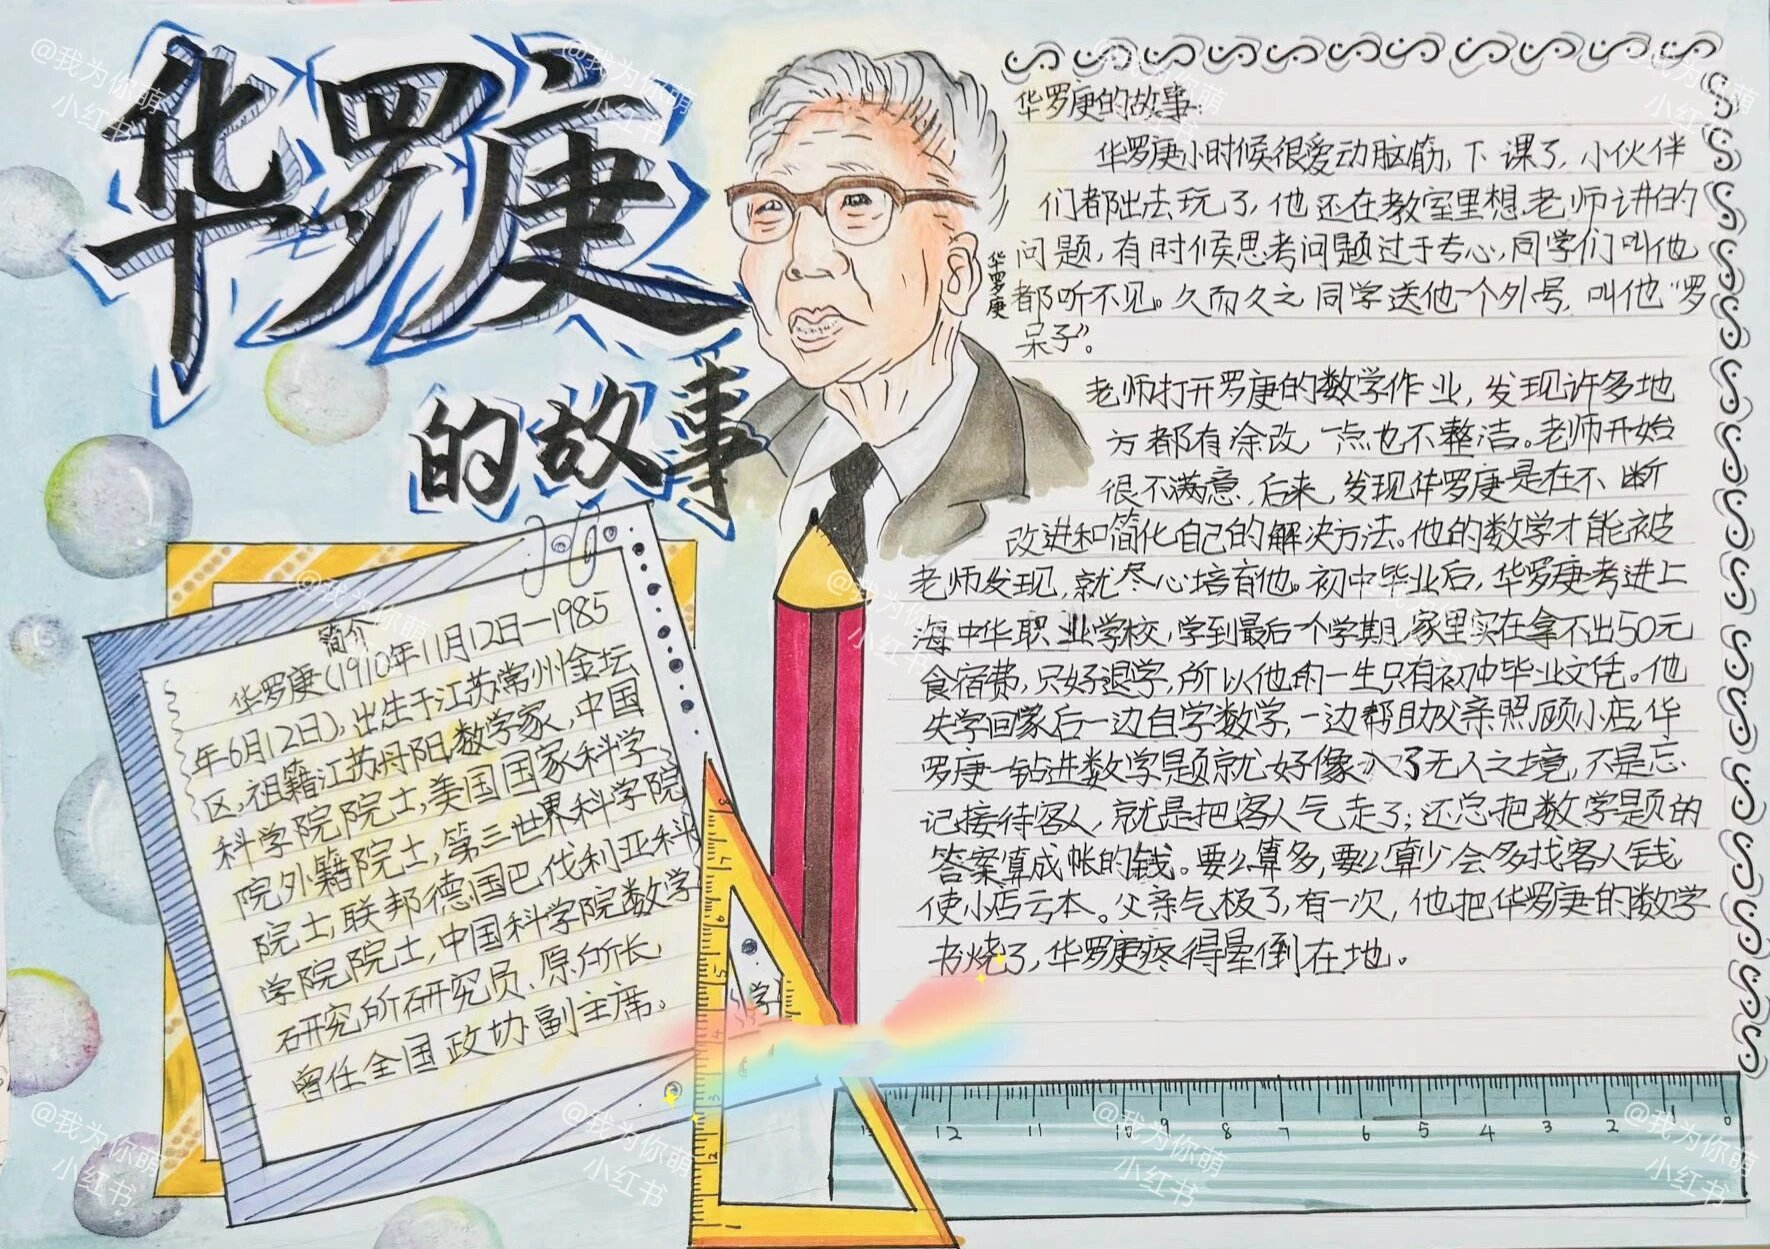 华罗庚
的故事
简介
华罗庚(1910年11月12日—1985
年6月12日),出生于江苏常州金坛
区,祖籍江苏丹阳,数学家,中国
科学院院士,美国国家科学
院外籍院士,第三世界科学院
院士,联邦德国巴伐利亚科
学院院士,中国科学院数学
研究所研究员、原所长,
曾任全国政协副主席。
华罗庚
华罗庚的故事:
华罗庚小时候很爱动脑筋,下课了,小伙伴
们都出去玩了,他还在教室里想老师讲的
问题,有时候思考问题过于专心,同学们叫他
都听不见。久而久之同学送他一个外号,叫他“罗
呆子”。
老师打开罗庚的数学作业,发现许多地
方都有涂改,一点也不整洁。老师开始
很不满意,后来,发现华罗庚是在不断
改进和简化自己的解决方法。他的数学才能被
老师发现,就尽心培育他。初中毕业后,华罗庚考进上
海中华职业学校,学到最后一个学期,家里实在拿不出50元
食宿费,只好退学,所以他的一生只有初中毕业文凭。他
失学回家后一边自字数学,一边帮助父亲照顾小店,华
罗庚一钻进数学题就好像入了无人之境,不是忘
记接待客人,就是把客人气走了;还总把数学题的
答案算成帐的钱。要么算多,要么算少,会多找客人钱
使小店亏本。父亲气极了,有一次,他把华罗庚的数学
书烧了,华罗庚疼得晕倒在地。
学
12 11 10 9 8 7 6 5 4 3 2 0
@我为你萌
小红书
@我为你萌
小红书
@我为你萌
小红书
@我为你萌
小红书
@我为你萌
小红书
@我为你萌
小红书
@我为你萌
小红书
@我为你萌
小红书
@我为你萌
小红书
@我为你萌
小红书